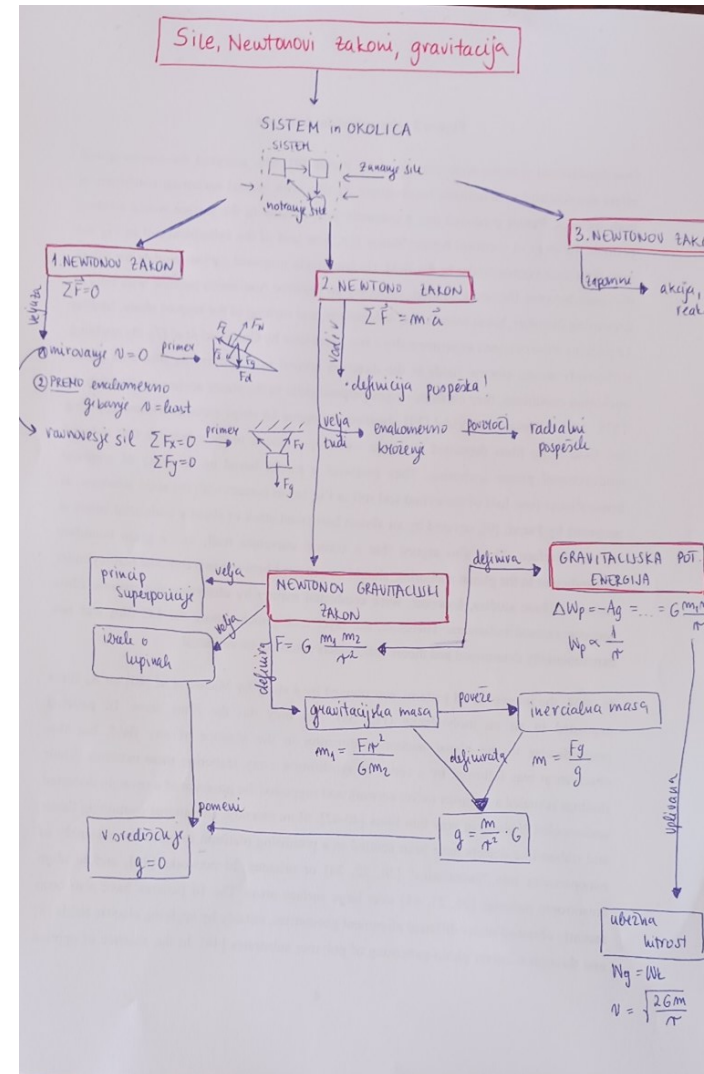 Sile, Newtonovi zakoni, gravitacija
SISTEM in OKOLICA
SISTEM
zunanje sile
notranje sile
1. NEWTONOV ZAKON
ΣF⃗=0
velja za
① mirovanje v=0 primer
F_N
F_g
F_d
② PREMO enakomerno
gibanje v=konst
ravnovesje sil ΣFx=0 primer
ΣFy=0
F_v
F_g
2. NEWTONO ZAKON
ΣF⃗ = m a⃗
vodi v
• definicija pospeška!
velja
tudi
enakomerno
kroženje
povzroči
radialni
pospešek
3. NEWTONOV ZAK
akcija,
reak
NEWTONOV GRAVITACIJSKI
ZAKON
F = G m₁ m₂ / r²
velja
princip
superpozicije
velja
izrek o
lupinah
definira
GRAVITACIJSKA POT.
ENERGIJA
ΔWp = -Ag = ... = G m₁m
r
Wp ∝ 1/r
definira
gravitacijska masa
m₁ = Fr² / Gm₂
poveže
inercialna masa
m = Fg / g
definirata
g = m/r² · G
pomeni
v središču je
g=0
ubežna
hitrost
Wg = Wk
v = √(2Gm/r)